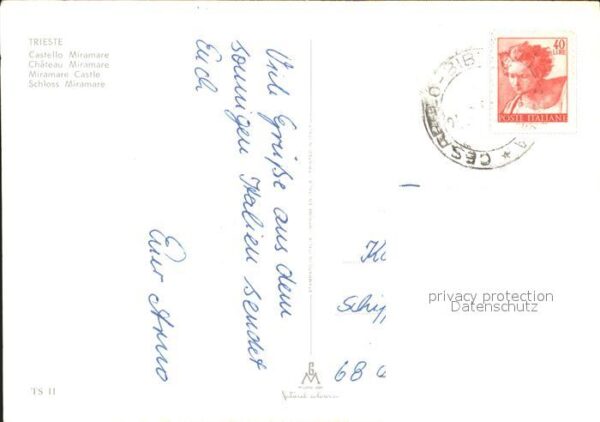 TRIESTE
Castello Miramare
Château Miramare
Miramare Castle
Schloss Miramare
Viele Grüße aus dem
sonnigen Italien sendet
Euch
Euer Arno
40
LIRE
POSTE ITALIANE
privacy protection
Datenschutz
68
TS 11